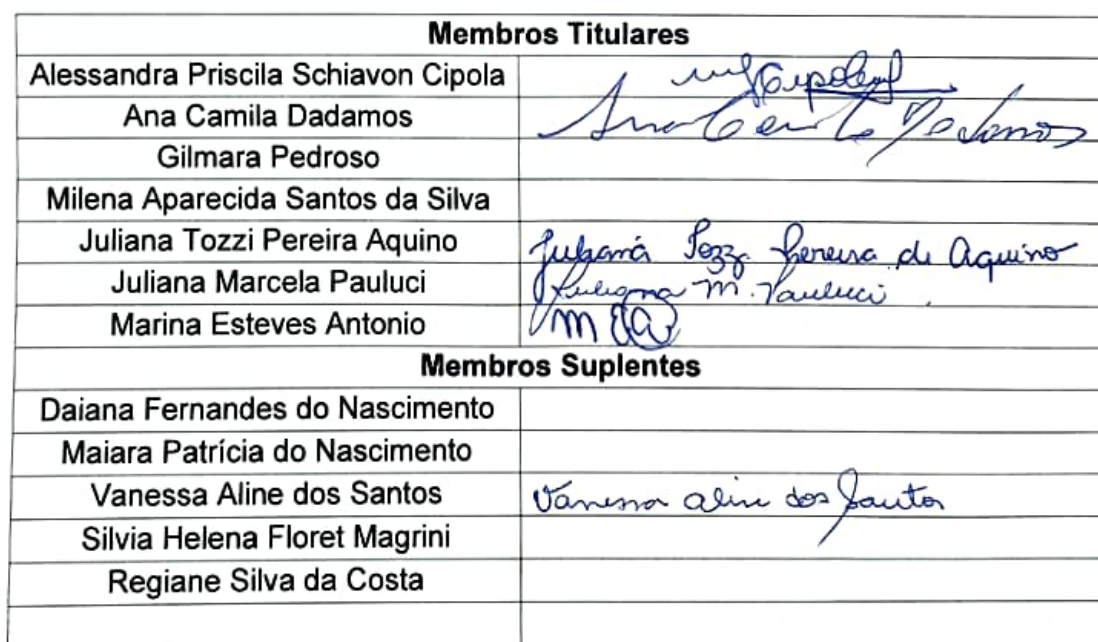 Membros Titulares
Alessandra Priscila Schiavon Cipola Cipola
Ana Camila Dadamos Ana Camila Dadamos
Gilmara Pedroso
Milena Aparecida Santos da Silva
Juliana Tozzi Pereira Aquino Juliana Tozzi Pereira de Aquino
Juliana Marcela Pauluci Juliana M. Pauluci
Marina Esteves Antonio
Membros Suplentes
Daiana Fernandes do Nascimento
Maiara Patrícia do Nascimento
Vanessa Aline dos Santos Vanessa Aline dos Santos
Silvia Helena Floret Magrini
Regiane Silva da Costa